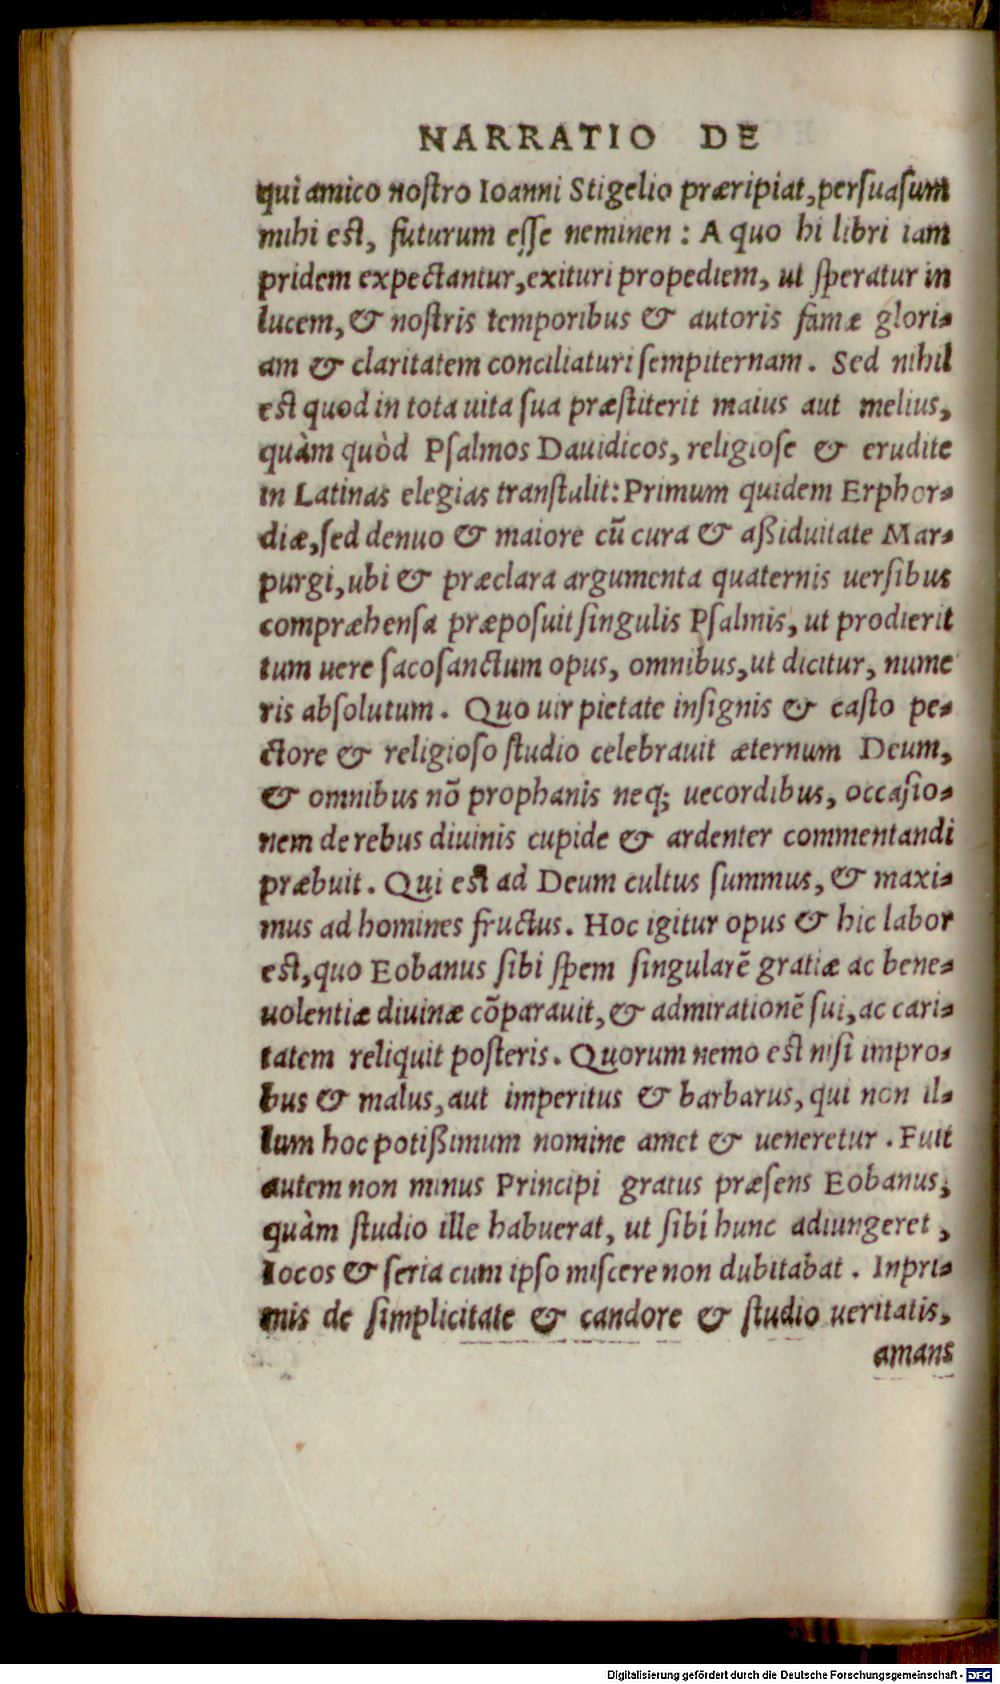 NARRATIO DE
qui amico nostro Ioanni Stigelio præripiat, persuasum
mihi est, futurum esse neminen : A quo hi libri iam
pridem expectantur, exituri propediem, ut speratur in
lucem, & nostris temporibus & autoris famæ glori-
am & claritatem conciliaturi sempiternam. Sed nihil
est quod in tota uita sua præstiterit maius aut melius,
quàm quòd Psalmos Dauidicos, religiose & erudite
in Latinas elegias transtulit: Primum quidem Erphor-
diæ, sed denuo & maiore cũ cura & aßiduitate Mar-
purgi, ubi & præclara argumenta quaternis uersibus
compræhensa præposuit singulis Psalmis, ut prodierit
tum uere sacosanctum opus, omnibus, ut dicitur, nume
ris absolutum. Quo uir pietate insignis & casto pe-
ctore & religioso studio celebrauit æternum Deum,
& omnibus nõ prophanis neq; uecordibus, occasio-
nem de rebus diuinis cupide & ardenter commentandi
præbuit. Qui est ad Deum cultus summus, & maxi-
mus ad homines fructus. Hoc igitur opus & hic labor
est, quo Eobanus sibi spem singularẽ gratiæ ac bene-
uolentiæ diuinæ cõparauit, & admirationẽ sui, ac cari-
tatem reliquit posteris. Quorum nemo est nisi impro-
bus & malus, aut imperitus & barbarus, qui non il-
lum hoc potißimum nomine amet & ueneretur. Fuit
autem non minus Principi gratus præsens Eobanus,
quàm studio ille habuerat, ut sibi hunc adiungeret,
Iocos & seria cum ipso miscere non dubitabat. Inpri-
mis de simplicitate & candore & studio ueritatis,
amans
Digitalisierung gefördert durch die Deutsche Forschungsgemeinschaft - DFG